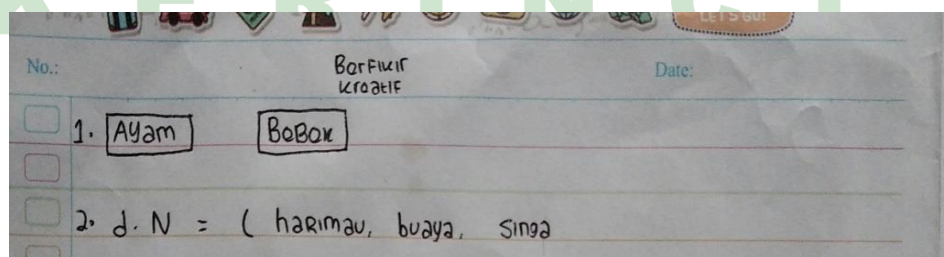 LET'S GO!
No.: Berfikir Date:
kreatif
1. Ayam BeBek
2. d. N = ( haRimau, buaya, singa